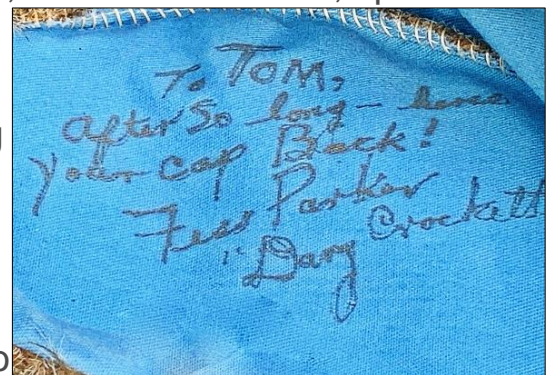 To TOM,
after so long - heres
your cap Back!
Fess Parker
"Davy Crockett